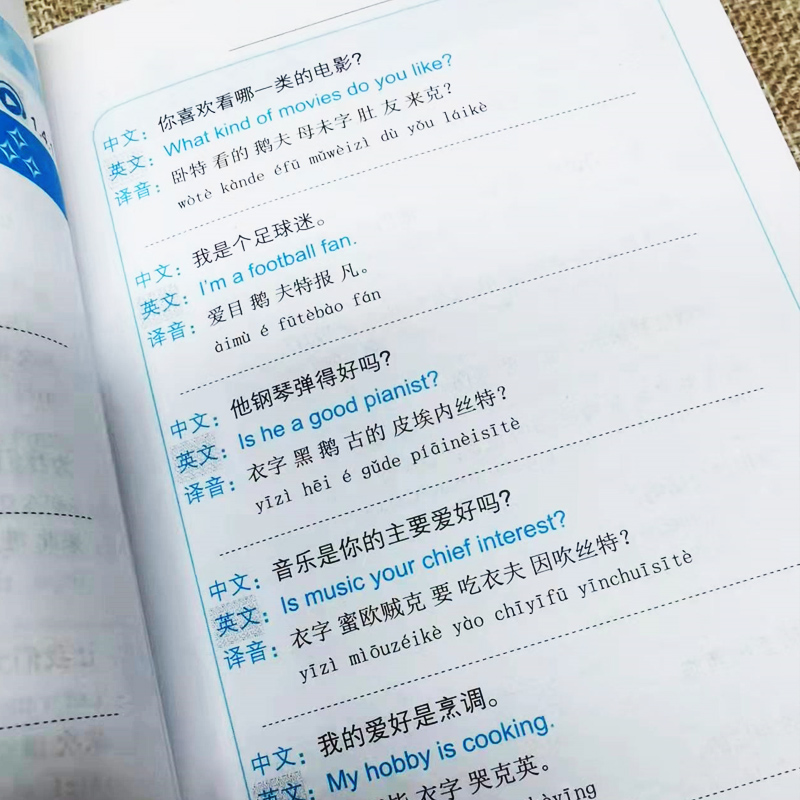 中文：你喜欢看哪一类的电影？
英文：What kind of movies do you like?
译音：卧特 看的 鹅夫 母未字 肚 友 来克？
wòtè kànde éfū mǔwèizì dù yǒu láikè
中文：我是个足球迷。
英文：I'm a football fan.
译音：爱目 鹅 夫特报 凡。
àimù é fūtèbào fán
中文：他钢琴弹得好吗？
英文：Is he a good pianist?
译音：衣字 黑 鹅 古的 皮埃内丝特？
yīzì hēi é gǔde píāinèisītè
中文：音乐是你的主要爱好吗？
英文：Is music your chief interest?
译音：衣字 蜜欧贼克 要 吃衣夫 因吹丝特？
yīzì mìōuzéikè yào chīyīfū yīnchuīsītè
中文：我的爱好是烹调。
英文：My hobby is cooking.
衣字 哭克英。